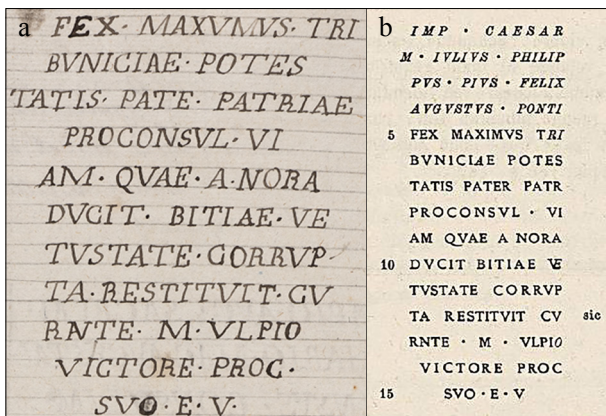 a
FEX· MAXVMVS· TRI
BVNICIAE· POTES
TATIS· PATE· PATRIAE
PROCONSVL· VI
AM· QVAE· A·NORA
DVCIT· BITIAE· VE
TVSTATE· CORRVP·
TA·RESTITVIT·CV
RNTE· M· VLPIO
VICTORE· PROC·
SVO·E·V·
b
IMP · CAESAR
M · IVLIVS · PHILIP
PVS · PIVS · FELIX
AVGVSTVS · PONTI
5 FEX MAXIMVS TRI
BVNICIAE POTES
TATIS PATER PATR
PROCONSVL · VI
AM QVAE A NORA
10 DVCIT BITIAE VE
TVSTATE CORRVP
TA RESTITVIT CV sic
RNTE · M · VLPIO
VICTORE PROC
15 SVO · E · V